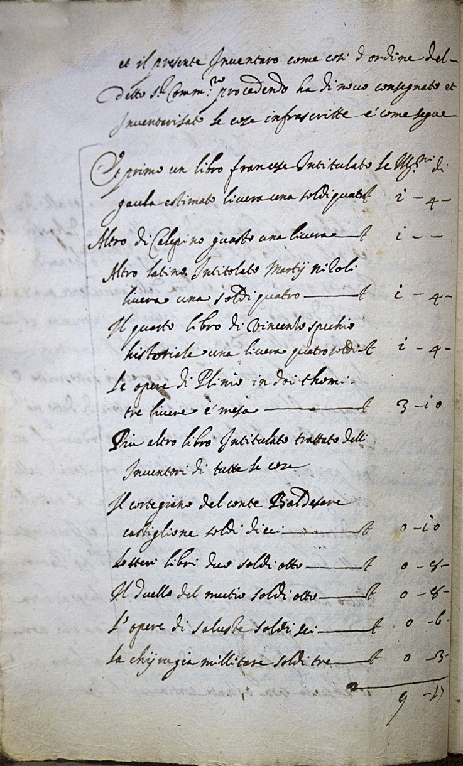 et il presente Inventaro come cosi d'ordine del-
detto Sr. Comm.rio procedendo ha di novo consegnato et
Inventarisato le cose infrascritte e come segue
E primo un libro francese Intitulato le di
gaula estimato livera una soldi quatt l 1 - 4 -
Altro di Calepino guasto una livera l 1 - -
Altro latino Intitolato Martij
livera una soldi quatro l 1 - 4 -
Il quarto libro di Vincentio spechio
historiale una livera quatro soldi l 1 - 4 -
Le opere di Plinio in doi thomi
tre livere e mesa l 3 - 10
Più altro libro Intitulato trattato delli
Inventori di tutte le cose
Il cortegiano del conte Baldesare
castiglione soldi dieci l 0 - 10
libri duo soldi otto l 0 - 8 -
Il Duello del mutio soldi otto l 0 - 8 -
L'opere di saluste soldi sei l 0 - 6 -
La chirugia millitare soldi tre l 0 - 3 -
9 - 17